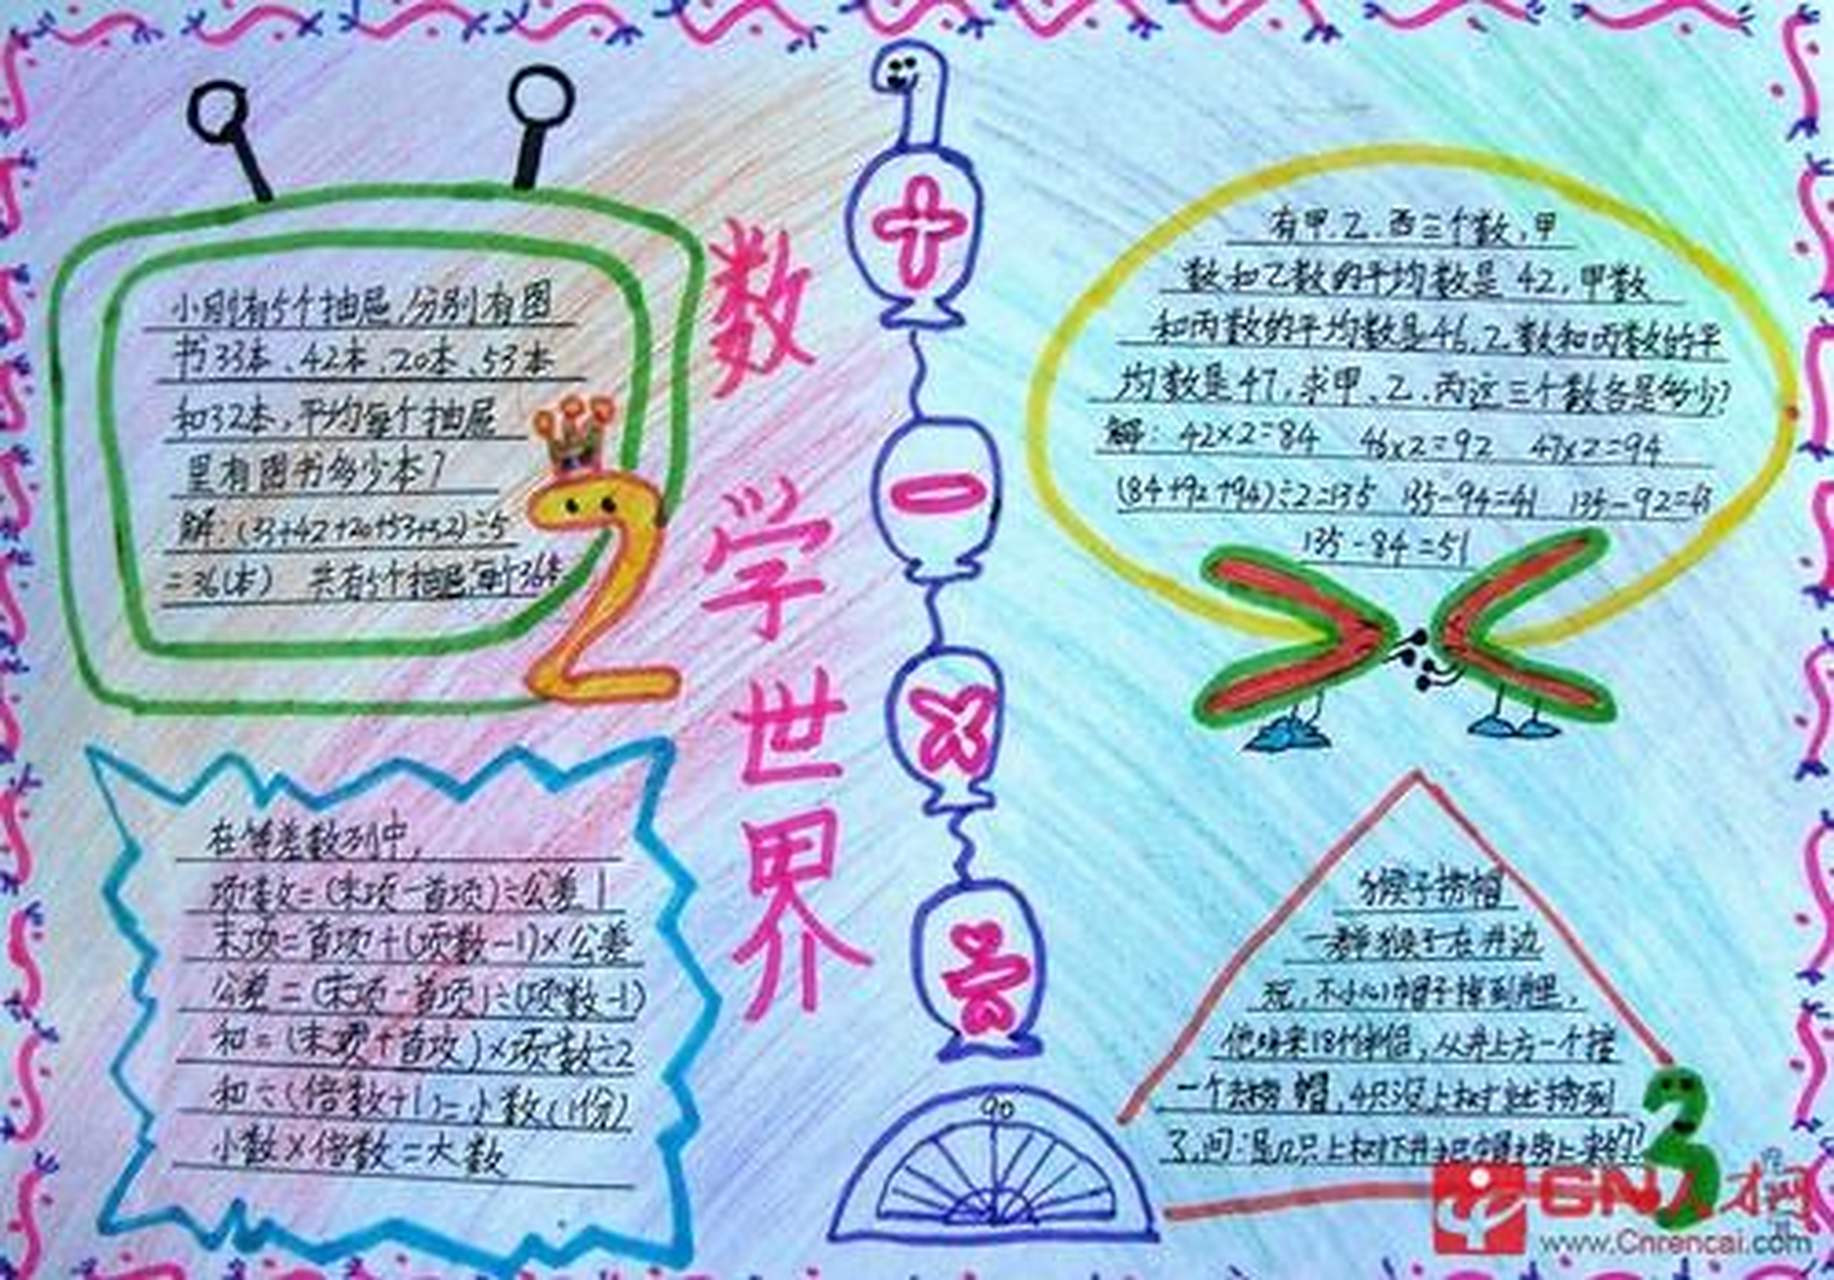 小刚有5个抽屉,分别有图
书33本、42本、20本、53本
和32本,平均每个抽屉
里有图书多少本?
解:(33+42+20+53+32)÷5
=36(本) 共有5个抽屉,每个36本
数学世界
+
-
×
÷
90
有甲、乙、西三个数,甲
数和乙数的平均数是42,甲数
和丙数的平均数是46,乙数和丙数的平
均数是47,求甲、乙、丙这三个数各是多少?
解: 42×2=84 46×2=92 47×2=94
(84+92+94)÷2=135 135-94=41 135-92=43
135-84=51
在等差数列中,
项数=(末项-首项)÷公差
末项=首项+(项数-1)×公差
公差=(末项-首项)÷(项数-1)
和=(末项+首项)×项数÷2
和÷(倍数+1)=小数(1份)
小数×倍数=大数
猴子捞帽
一群猴子在井边
玩,不小心帽子掉到井里,
他喊来18个伴侣,从井上方一个接
一个去捞帽,4只没上树就捞到
了,问:是几只上树下井把帽捞上来的?
CN人才网
www.Cnrencai.com